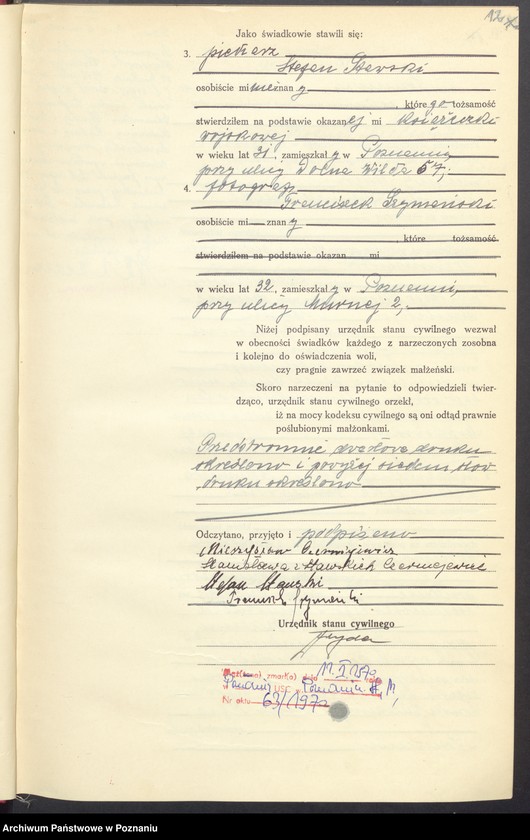 Jako świadkowie stawili się:
3. piekarz
Stefan
osobiście mi nieznany
, które go tożsamość
stwierdziłem na podstawie okazanej mi książeczki
wojskowej
w wieku lat 31, zamieszkały w Poznaniu
przy ulicy Dolna Wilda 57,
4. fotograf
Franciszek Szymański
osobiście mi znany
, które tożsamość
stwierdziłem na podstawie okazan mi
w wieku lat 32, zamieszkały w Poznaniu,
przy ulicy Murnej 2,
Niżej podpisany urzędnik stanu cywilnego wezwał
w obecności świadków każdego z narzeczonych zosobna
i kolejno do oświadczenia woli,
czy pragnie zawrzeć związek małżeński.
Skoro narzeczeni na pytanie to odpowiedzieli twier-
dząco, urzędnik stanu cywilnego orzekł,
iż na mocy kodeksu cywilnego są oni odtąd prawnie
poślubionymi małżonkami.
Przedstronnie dwa słowa druku
określono i powyżej siedem słów
druku określono
Odczytano, przyjęto i podpisano
Mieczysław Czerniejewicz
Stanisława z Sławskich Czerniejewicz
Stefan
Franciszek Szymański
Urzędnik stanu cywilnego
zmarł(a) dnia
USC Poznań
Nr aktu 63/1979
Archiwum Państwowe w Poznaniu